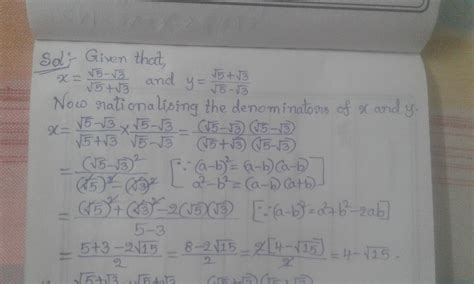 Sol:- Given that,
x = (√5-√3)/(√5+√3) and y = (√5+√3)/(√5-√3)
Now rationalising the denominators of x and y.
x = (√5-√3)/(√5+√3) × (√5-√3)/(√5-√3) = (√5-√3)(√5-√3)/(√5+√3)(√5-√3)
= (√5-√3)²/((√5)²-(√3)²) [∵ (a-b)² = (a-b)(a-b)
a²-b² = (a-b)(a+b)]
= ((√5)²+(√3)²-2(√5)(√3))/(5-3) [∵ (a-b)² = a²+b²-2ab]
= (5+3-2√15)/2 = (8-2√15)/2 = 2[4-√15]/2 = 4-√15.